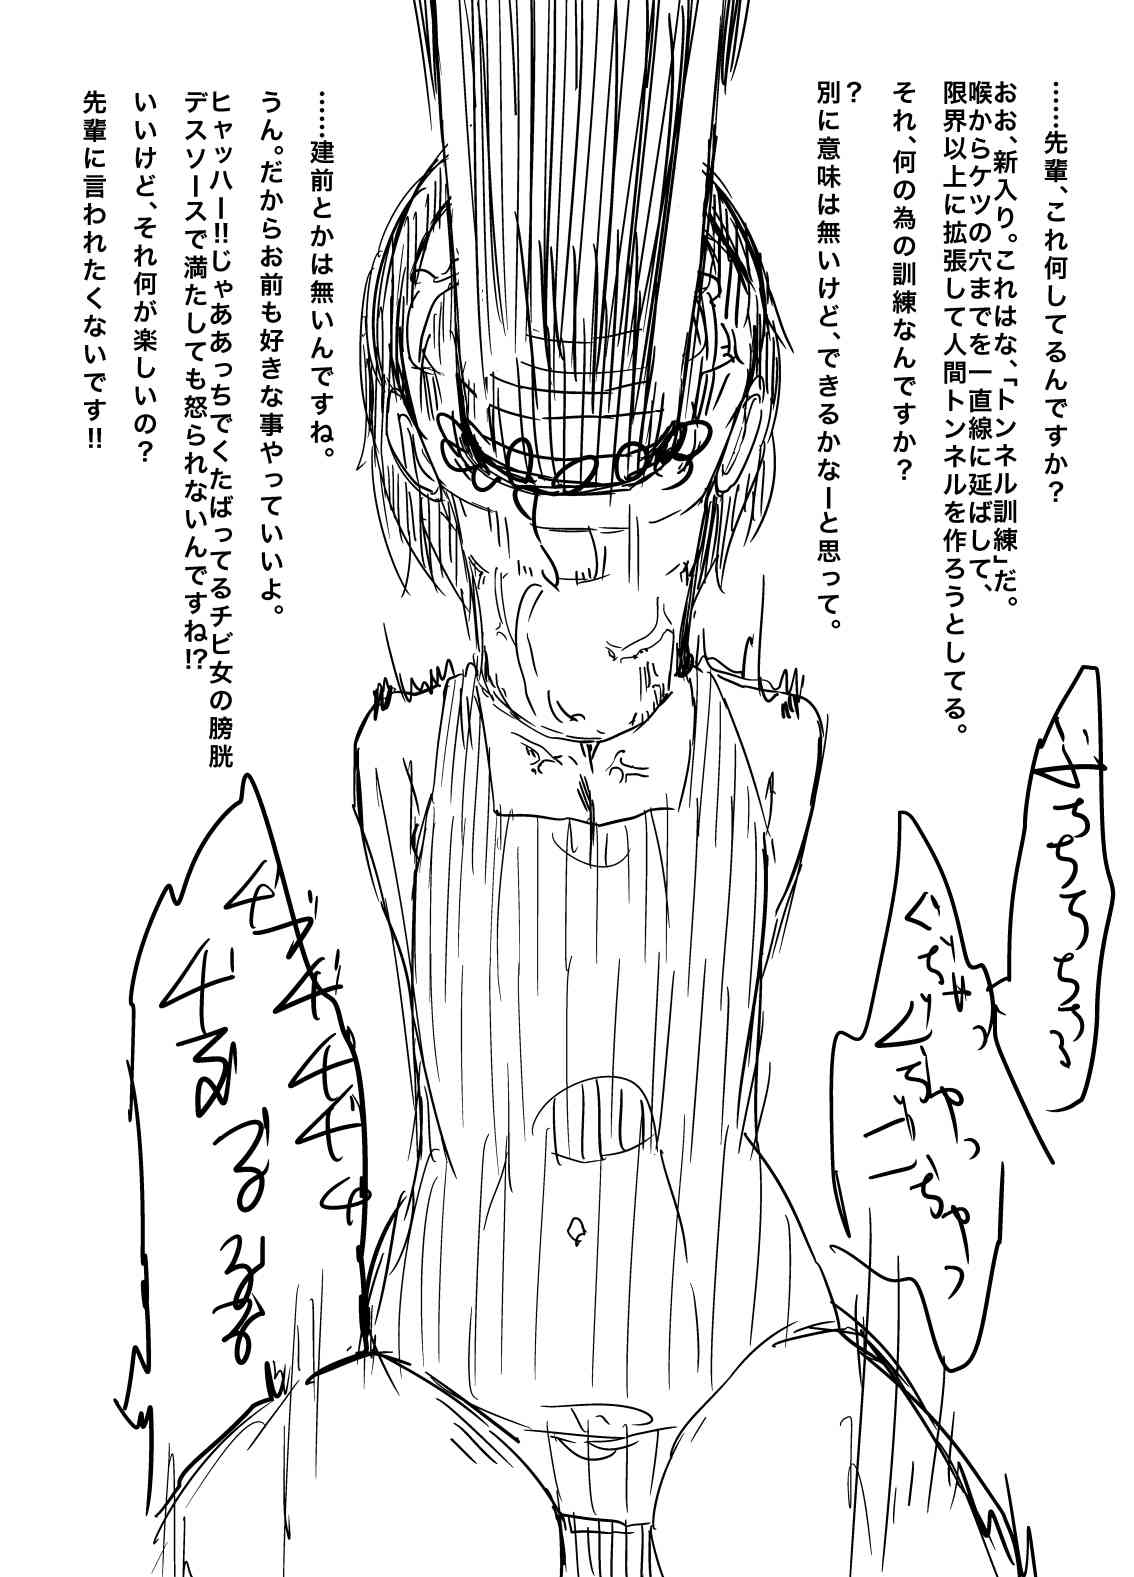 ……先輩、これ何してるんですか?
おお、新入り。これはな、「トンネル訓練」だ。
喉からケツの穴までを一直線に延ばして、
限界以上に拡張して人間トンネルを作ろうとしてる。
それ、何の為の訓練なんですか?
?
別に意味は無いけど、できるかなーと思って。
……建前とかは無いんですね。
うん。だからお前も好きな事やっていいよ。
ヒャッハー!!じゃああっちでくたばってるチビ女の膀胱
デスソースで満たしても怒られないんですね!?
いいけど、それ何が楽しいの?
先輩に言われたくないです!!
ぐちゃっ
ぐちゃっ